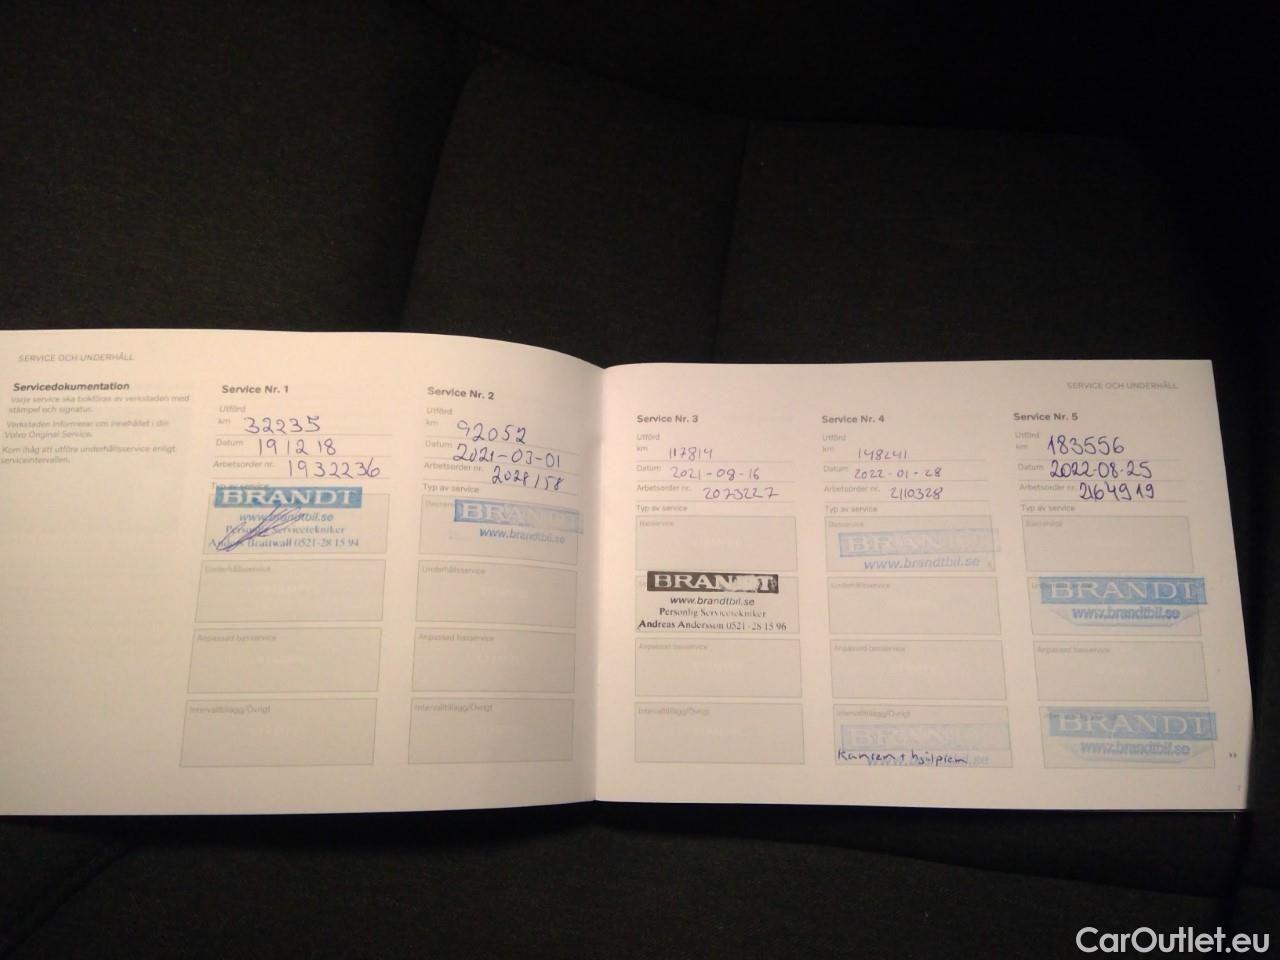 SERVICE OCH UNDERHÅLL
Servicedokumentation
Varje service ska bokföras av verkstaden med
stämpel och signatur.
Verkstaden informerar om innehållet i din
Volvo Original Service.
Kom ihåg att utföra underhållsservice enligt
serviceintervallen.
Service Nr. 1
Utförd
km 32235
Datum 191218
Arbetsorder nr. 1932236
Typ av service
BRANDT
www.brandtbil.se
Personlig Servicetekniker
Anders Brattwall 0521-28 15 94
Underhållsservice
Anpassad basservice
Intervalltillägg/Övrigt
Service Nr. 2
Utförd
km 92052
Datum 2021-03-01
Arbetsorder nr. 2028158
Typ av service
BRANDT
www.brandtbil.se
Underhållsservice
Anpassad basservice
Intervalltillägg/Övrigt
SERVICE OCH UNDERHÅLL
Service Nr. 3
Utförd
km 117814
Datum 2021-08-16
Arbetsorder nr. 2073227
Typ av service
Basservice
BRANDT
www.brandtbil.se
Personlig Servicetekniker
Andreas Andersson 0521-28 15 96
Anpassad basservice
Intervalltillägg/Övrigt
Service Nr. 4
Utförd
km 148241
Datum 2022-01-28
Arbetsorder nr. 2110328
Typ av service
Basservice
BRANDT
www.brandtbil.se
Underhållsservice
Anpassad basservice
Intervalltillägg/Övrigt
BRANDT
Kamrem +
Service Nr. 5
Utförd
km 183556
Datum 2022-08-25
Arbetsorder nr. 2164919
Typ av service
Basservice
BRANDT
www.brandtbil.se
Anpassad basservice
BRANDT
www.brandtbil.se
CarOutlet.eu